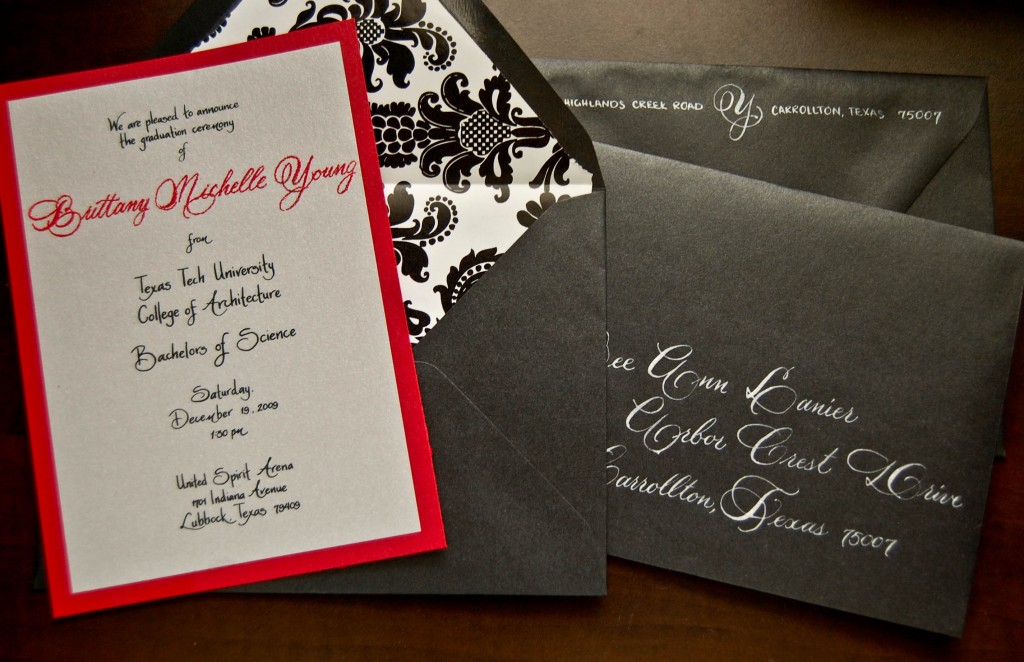 We are pleased to announce
the graduation ceremony
of
Brittany Michelle Young
from
Texas Tech University
College of Architecture
Bachelors of Science
Saturday,
December 19, 2009
1:30 pm
United Spirit Arena
1701 Indiana Avenue
Lubbock, Texas 79409
HIGHLANDS CREEK ROAD Y CARROLLTON, TEXAS 75007
Ann Lanier
Arbor Crest Drive
Carrollton, Texas 75007